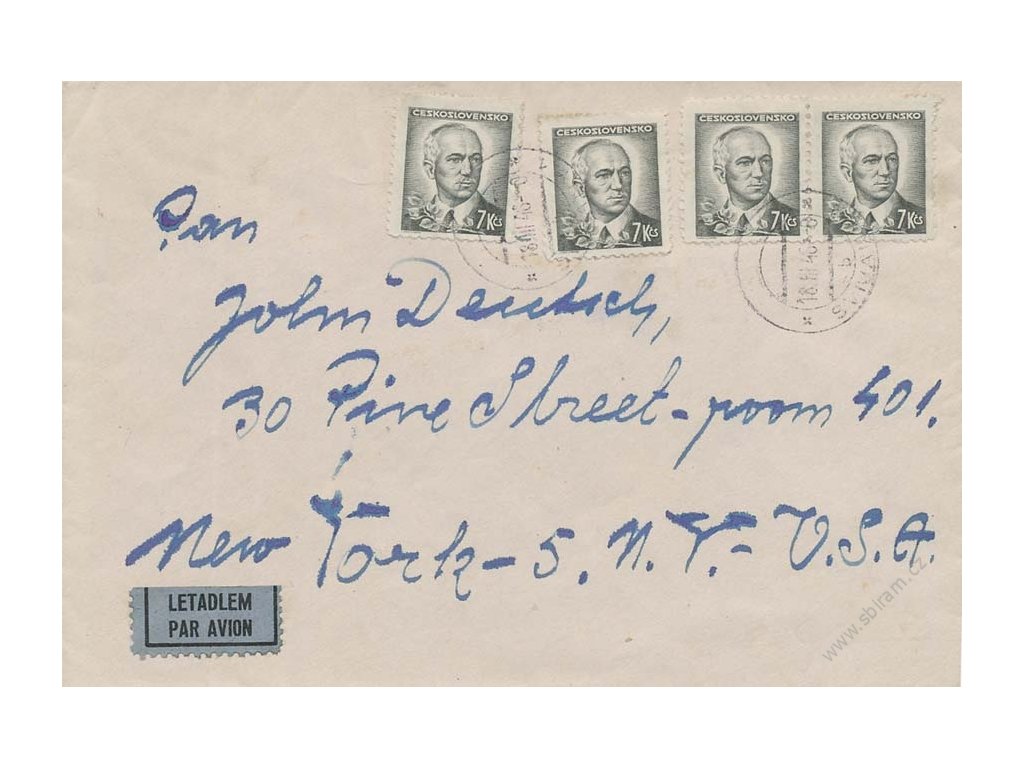 ČESKOSLOVENSKO
7 Kčs
ČESKOSLOVENSKO
7 Kčs
ČESKOSLOVENSKO
7 Kčs
ČESKOSLOVENSKO
7 Kčs
18.III.46
18.III.46
Pan
John Deutsch,
30 Pine Street - room 401.
New York - 5. N.Y. - U.S.A.
LETADLEM
PAR AVION
www.sbiram.cz